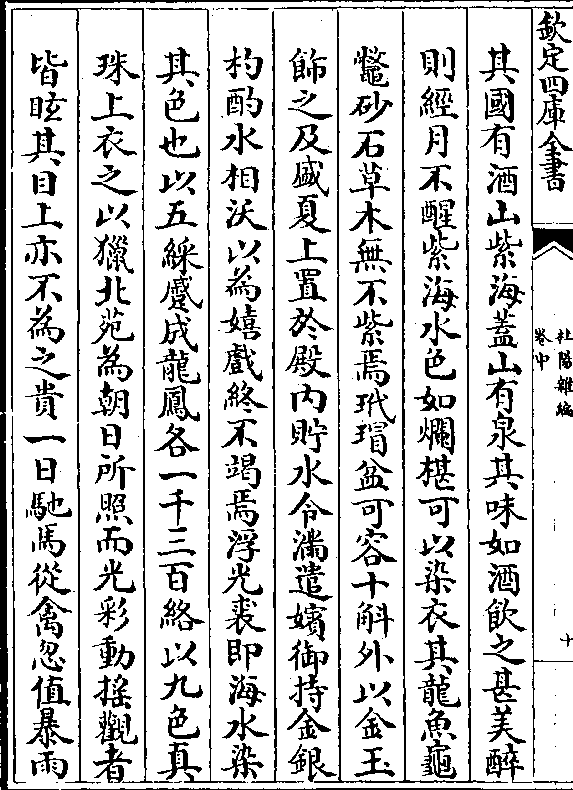 欽定四庫全書
杜陽雜編
卷中
十
其國有酒山紫海蓋山有泉其味如酒飲之甚美醉
則經月不醒紫海水色如爛椹可以染衣其龍魚龜
鼈砂石草木無不紫焉玳瑁盆可容十斛外以金玉
飾之及盛夏上置於殿内貯水令滿遣嬪御持金銀
杓酌水相沃以為嬉戲終不竭焉浮光裘即海水染
其色也以五綵蹙成龍鳳各一千三百絡以九色真
珠上衣之以獵北苑為朝日所照而光彩動揺觀者
皆眩其目上亦不為之貴一日馳馬從禽忽值暴雨